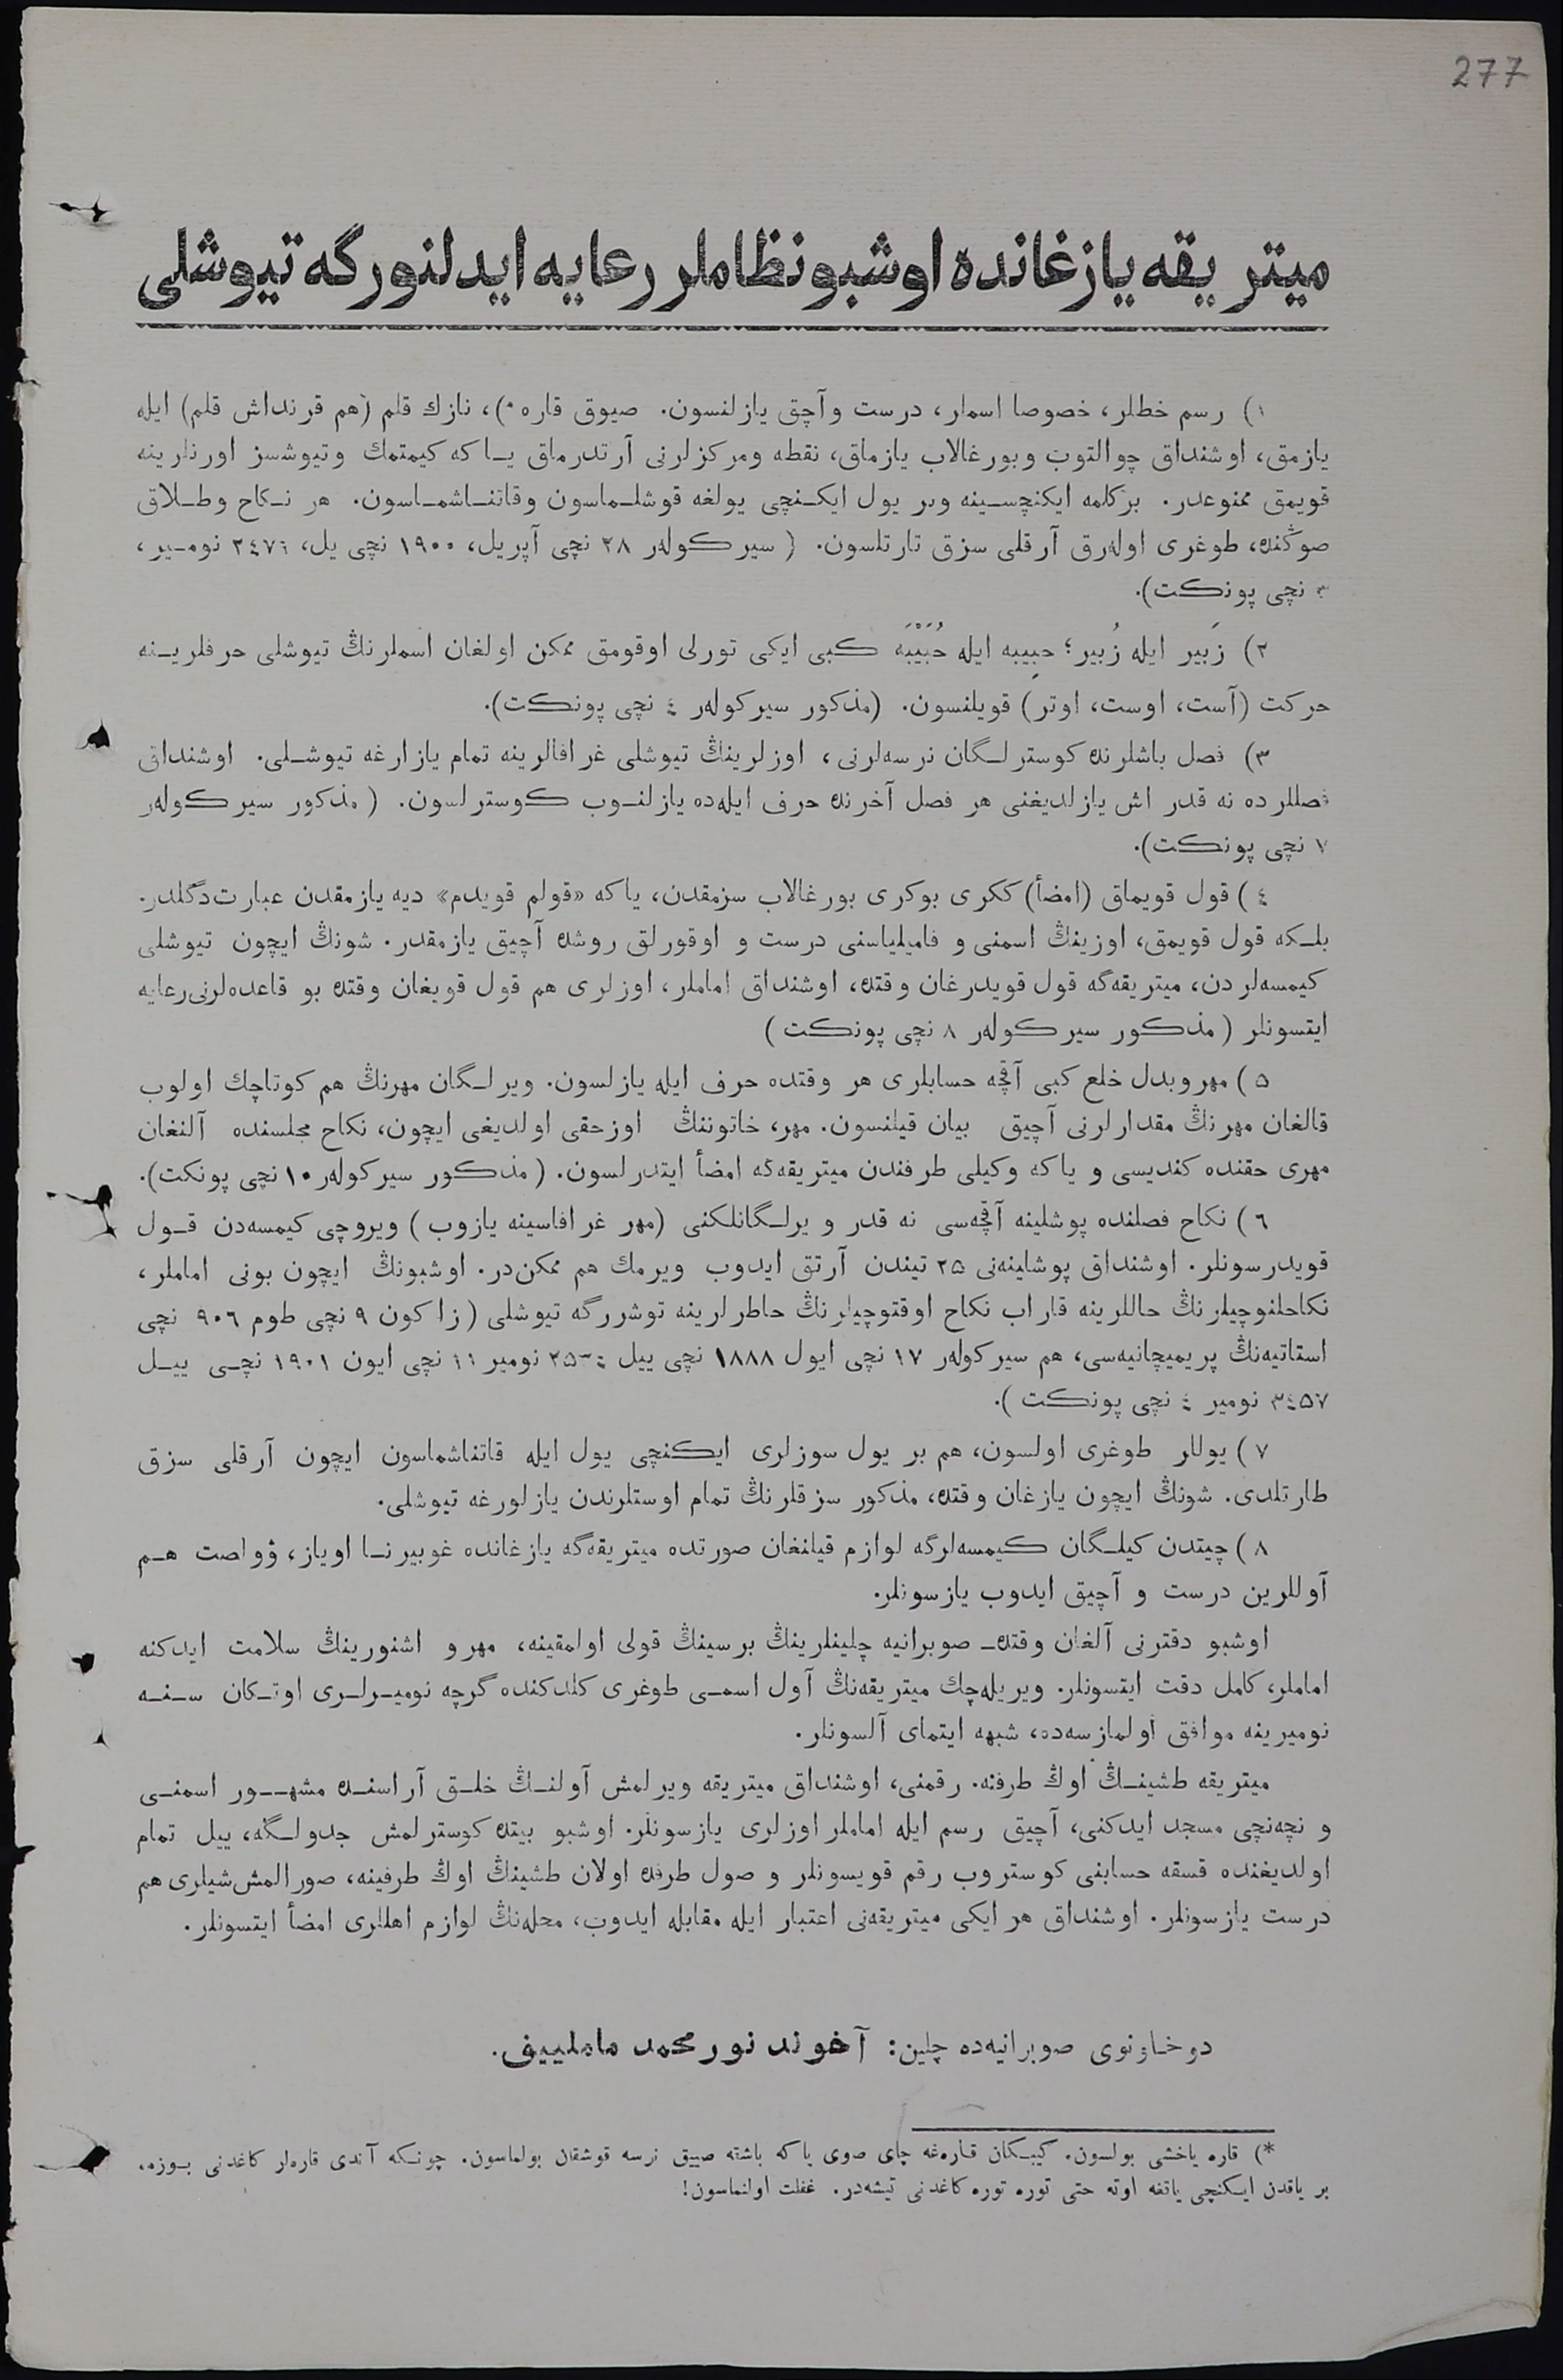 277
ميتريقه يازغانده اوشبو نظاملر رعايه ايدلنورگه تيوشلى
١) رسم خطلر، خصوصا اسملر، درست وآچق يازلنسون. صيوق قاره *)، نازك قلم (هم قرنداش قلم) ايله
يازمق، اوشنداق چوالتوب وبورغالاب يازماق، نقطه ومركزلرنى آرتدرماق يـاكه كيمتمك وتيوشسز اورنلرينه
قويمق ممنوعدر. بركلمه ايكنچسـينه وبر يول ايكـنچى يولغه قوشلـماسون وقاتنـاشمـاسون. هر نـكاح وطـلاق
صوڭنده، طوغرى اولەرق آرقلى سزق تارتلسون. (سيركولەر ٢٨ نچى آپريل، ١٩٠٠ نچى يل، ٢٤٧٦ نومـير،
٣ نچى پونكت).
٢) زَبير ايله زُبير؛ حبِيبه ايله حُبَيْبَه كبى ايكى تورلى اوقومق ممكن اولغان اسملرنڭ تيوشلى حرفلريـنه
حركت (آست، اوست، اوتر) قويلنسون. (مذكور سيركولەر ٤ نچى پونكت).
٣) فصل باشلرنده كوسترلـگان نرسەلرنى، اوزلرينڭ تيوشلى غرافالرينه تمام يازارغه تيوشـلى. اوشنداق
فصللرده نه قدر اش يازلديغنى هر فصل آخرنده حرف ايلەده يازلنـوب كوسترلسون. (مذكور سيركولەر
٧ نچى پونكت).
٤) قول قويماق (امضأ) ككرى بوكرى بورغالاب سزمقدن، ياكه «قولم قويدم» ديه يازمقدن عبارت دگلدر.
بلـكه قول قويمق، اوزينڭ اسمنى و فاميلياسنى درست و اوقورلق روشده آچيق يازمقدر. شونڭ ايچون تيوشلى
كيمسەلردن، ميتريقەگه قول قويدرغان وقتده، اوشنداق اماملر، اوزلرى هم قول قويغان وقتده بو قاعدەلرنى رعايه
ايتسونلر (مذكور سيركولەر ٨ نچى پونكت)
٥) مهر وبدل خلع كبى آقچه حسابلرى هر وقتده حرف ايله يازلسون. ويرلـگان مهرنڭ هم كوتاچك اولوب
قالغان مهرنڭ مقدارلرنى آچيق بيان قيلنسون. مهر، خاتوننڭ اوزحقى اولديغى ايچون، نكاح مجلسنده آلنغان
مهرى حقنده كنديسى و ياكه وكيلى طرفندن ميتريقەگه امضأ ايتدرلسون. (مذكور سيركولەر ١٠ نچى پونكت).
٦) نكاح فصلنده پوشلينه آقچەسى نه قدر ويرلـگانلكنى (مهر غرافاسينه يازوب) ويروچى كيمسەدن قـول
قويدرسونلر. اوشنداق پوشلينەنى ٢٥ تيندن آرتق ايدوب ويرمك هم ممكن در. اوشبونڭ ايچون بونى اماملر،
نكاحلنوچيلرنڭ حاللرينه قاراب نكاح اوقتوچيلرنڭ خاطرلرينه توشررگه تيوشلى (زاكون ٩ نچى طوم ٩٠٦ نچى
استاتيەنڭ پريميچانيەسى، هم سيركولەر ١٧ نچى ايول ١٨٨٨ نچى ييل نومير ١١ نچى ايون ١٩٠١ نچـى ييـل
٣٤٥٧ نومير ٤ نچى پونكت).
٧) يوللار طوغرى اولسون، هم بر يول سوزلرى ايكنچى يول ايله قاتناشماسون ايچون آرقلى سزق
طارتلدى. شونڭ ايچون يازغان وقتده، مذكور سزقلرنڭ تمام اوستلرندن يازلورغه تيوشلى.
٨) چيتدن كيلـگان كيمسەلرگه لوازم قيلنغان صورتده ميتريقەگه يازغانده غوبيرنـا اوياز، ۋولصت هـم
آوللرين درست و آچيق ايدوب يازسونلر.
اوشبو دفترنى آلغان وقتده صوبرانيه چلينلرينڭ برسينڭ قولى اولمقينه، مهر و اشنورينڭ سلامت ايدكنه
اماملر، كامل دقت ايتسونلر. ويريلەچك ميتريقەنڭ آول اسمـى طوغرى كلدكنده گرچه نوميـرلـرى اوتـكان سـنـه
نوميرينه موافق اولمازسەده، شبهه ايتماى آلسونلر.
ميتريقه طشينـڭ اوڭ طرفنه. رقمنى، اوشنداق ميتريقه ويرلمش آولنـڭ خلـق آراسنـده مشهــور اسمنـى
و نچەنچى مسجد ايدكنى، آچيق رسم ايله اماملر اوزلرى يازسونلر. اوشبو بيتده كوسترلمش جدولـگه، ييل تمام
اولديغنده قسقه حسابنى كوستروب رقم قويسونلر و صول طرفده اولان طشينڭ اوڭ طرفينه، صورالمش شيلرى هم
درست يازسونلر. اوشنداق هر ايكى ميتريقەنى اعتبار ايله مقابله ايدوب، محلەنڭ لوازم اهللرى امضأ ايتسونلر.
دوخاونوى صوبرانيەده چلين: آخوند نورمحمد ماملييف.
*) قاره ياخشى بولسون. كيبـكان قارەغه چاى صوى ياكه باشقه صييق نرسه قوشقان بولماسون. چونـكه آندى قارەلر كاغدنى بـوزه.
بر ياقدن ايـكنچى ياققه اوته حتى توره توره كاغدنى تيشەدر. غفلت اولنماسون!